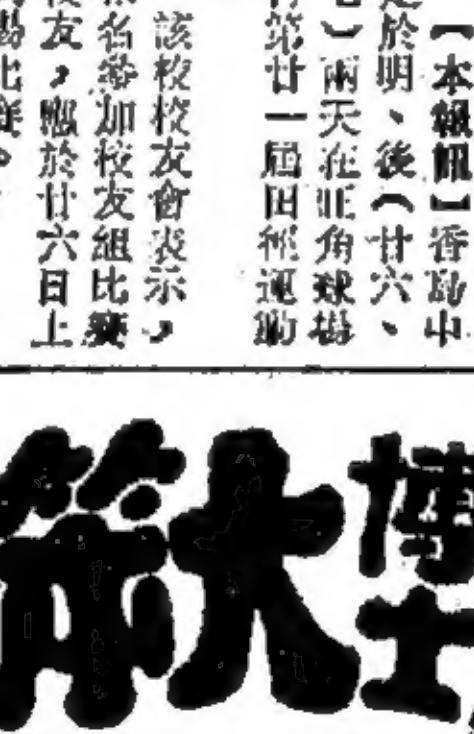 【本報訊】香島中
於明、後（廿六、
）兩天在旺角球場
第廿一屆田徑運動
該校校友會表示，
名參加校友組比賽
友，應於廿六日上
比賽。
博士
大